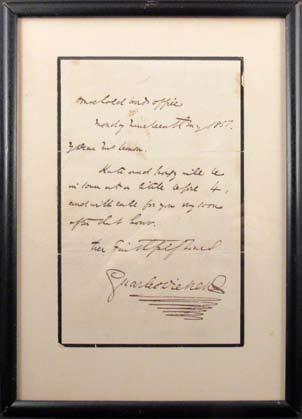 Household Words Office
Monday Nineteenth May 1851.
My Dear Mrs Lemon.
Kate and Georgy will be
in town at a little before 4,
and will call for you very soon
after that hour.
Ever Faithfully Yours
Charles Dickens